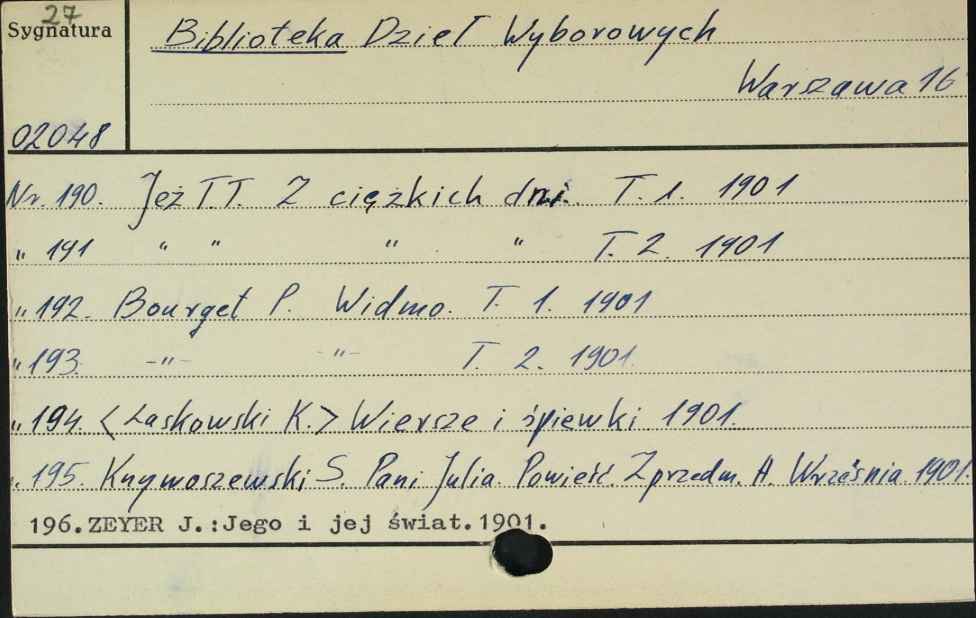 27
Sygnatura
Biblioteka Dzieł Wyborowych
Warszawa 16
02048
Nr. 190. Jeż T.T. Z ciężkich dni. T. 1. 1901
" 191 " " " " T. 2. 1901
" 192. Bourget P. Widmo. T. 1. 1901
" 193. -"- -"- T. 2. 1901.
" 194. <Laskowski K.> Wiersze i śpiewki 1901.
" 195. S. Pani Julia. Powieść. Z przedm. A. Września. 1901.
196.ZEYER J.:Jego i jej świat.1901.